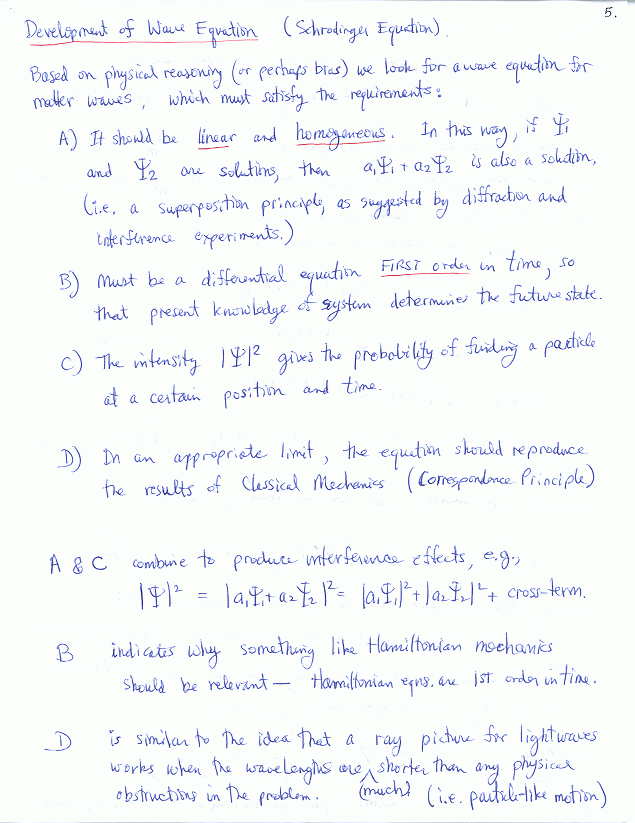 5.
Development of Wave Equation (Schrodinger Equation).
Based on physical reasoning (or perhaps bias) we look for a wave equation for
matter waves, which must satisfy the requirements:
A) It should be linear and homogeneous. In this way, if Ψ₁
and Ψ₂ are solutions, then a₁Ψ₁ + a₂Ψ₂ is also a solution,
(i.e. a superposition principle, as suggested by diffraction and
interference experiments.)
B) Must be a differential equation FIRST order in time, so
that present knowledge of system determines the future state.
C) The intensity |Ψ|² gives the probability of finding a particle
at a certain position and time.
D) In an appropriate limit, the equation should reproduce
the results of Classical Mechanics (Correspondence Principle)
A & C combine to produce interference effects, e.g.,
|Ψ|² = |a₁Ψ₁ + a₂Ψ₂|² = |a₁Ψ₁|² + |a₂Ψ₂|² + cross-term.
B indicates why something like Hamiltonian mechanics
should be relevant — Hamiltonian eqns. are 1st order in time.
D is similar to the idea that a ray picture for lightwaves
works when the wavelengths are ^ shorter than any physical
obstructions in the problem. (much) (i.e. particle-like motion)